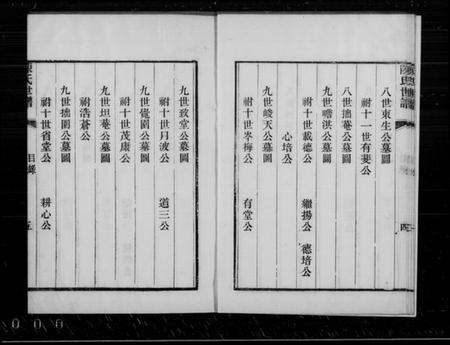 八世東生公墓圖
祔十一世有斐公
八世拙菴公墓圖
九世瞻淇公墓圖
祔十世載德公 繼揚公 德培公
心培公
九世峻天公墓圖
祔十世岑梅公 有堂公
四
九世致堂公墓圖
祔十世月波公 道三公
九世覺園公墓圖
祔十世茂康公
九世坦菴公墓圖
祔浩蒼公
九世拙園公墓圖
祔十世省堂公 耕心公
氏世譜 目錄 五
000